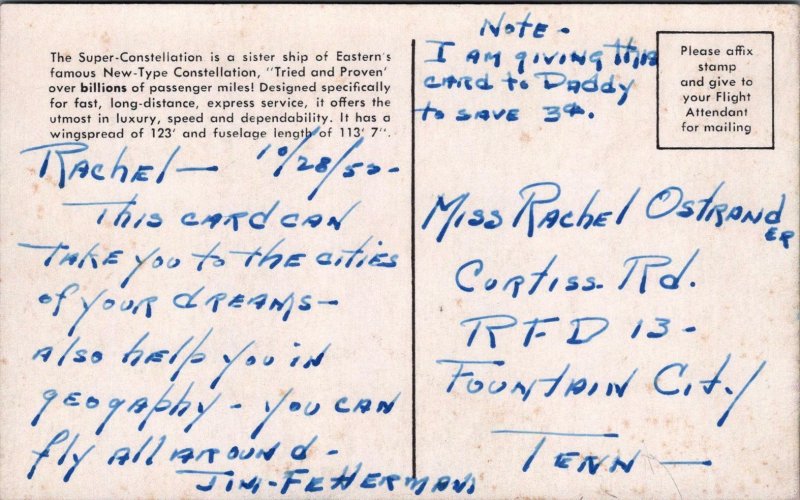 The Super-Constellation is a sister ship of Eastern's
famous New-Type Constellation, "Tried and Proven"
over billions of passenger miles! Designed specifically
for fast, long-distance, express service, it offers the
utmost in luxury, speed and dependability. It has a
wingspread of 123' and fuselage length of 113' 7".
Rachel— 10/28/52-
This card can
take you to the cities
of your dreams—
also help you in
geography - you can
fly all around -
Jim-Fetterman
Note-
I am giving this
card to Daddy
to save 3¢.
Please affix
stamp
and give to
your Flight
Attendant
for mailing
Miss Rachel Ostrander
Curtiss. Rd.
RFD 13-
Fountain City
Tenn—